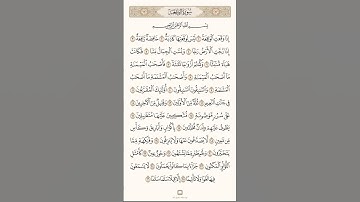 سُورَةُ الوَاقِعَةِ
بِسْمِ اللَّهِ الرَّحْمَٰنِ الرَّحِيمِ
إِذَا وَقَعَتِ الْوَاقِعَةُ ١ لَيْسَ لِوَقْعَتِهَا كَاذِبَةٌ ٢ خَافِضَةٌ رَّافِعَةٌ ٣
إِذَا رُجَّتِ الْأَرْضُ رَجًّا ٤ وَبُسَّتِ الْجِبَالُ بَسًّا ٥ فَكَانَتْ
هَبَاءً مُّنبَثًّا ٦ وَكُنتُمْ أَزْوَاجًا ثَلَاثَةً ٧ فَأَصْحَابُ الْمَيْمَنَةِ
مَا أَصْحَابُ الْمَيْمَنَةِ ٨ وَأَصْحَابُ الْمَشْئَمَةِ مَا أَصْحَابُ
الْمَشْئَمَةِ ٩ وَالسَّابِقُونَ السَّابِقُونَ ١٠ أُولَٰئِكَ الْمُقَرَّبُونَ ١١
فِي جَنَّاتِ النَّعِيمِ ١٢ ثُلَّةٌ مِّنَ الْأَوَّلِينَ ١٣ وَقَلِيلٌ مِّنَ الْآخِرِينَ ١٤
عَلَىٰ سُرُرٍ مَّوْضُونَةٍ ١٥ مُّتَّكِئِينَ عَلَيْهَا مُتَقَابِلِينَ ١٦
يَطُوفُ عَلَيْهِمْ وِلْدَانٌ مُّخَلَّدُونَ ١٧ بِأَكْوَابٍ وَأَبَارِيقَ وَكَأْسٍ
مِّن مَّعِينٍ ١٨ لَّا يُصَدَّعُونَ عَنْهَا وَلَا يُنزِفُونَ ١٩ وَفَاكِهَةٍ مِّمَّا
يَتَخَيَّرُونَ ٢٠ وَلَحْمِ طَيْرٍ مِّمَّا يَشْتَهُونَ ٢١ وَحُورٌ عِينٌ ٢٢ كَأَمْثَالِ
اللُّؤْلُؤِ الْمَكْنُونِ ٢٣ جَزَاءً بِمَا كَانُوا يَعْمَلُونَ ٢٤ لَا يَسْمَعُونَ
فِيهَا لَغْوًا وَلَا تَأْثِيمًا ٢٥ إِلَّا قِيلًا سَلَامًا سَلَامًا ٢٦